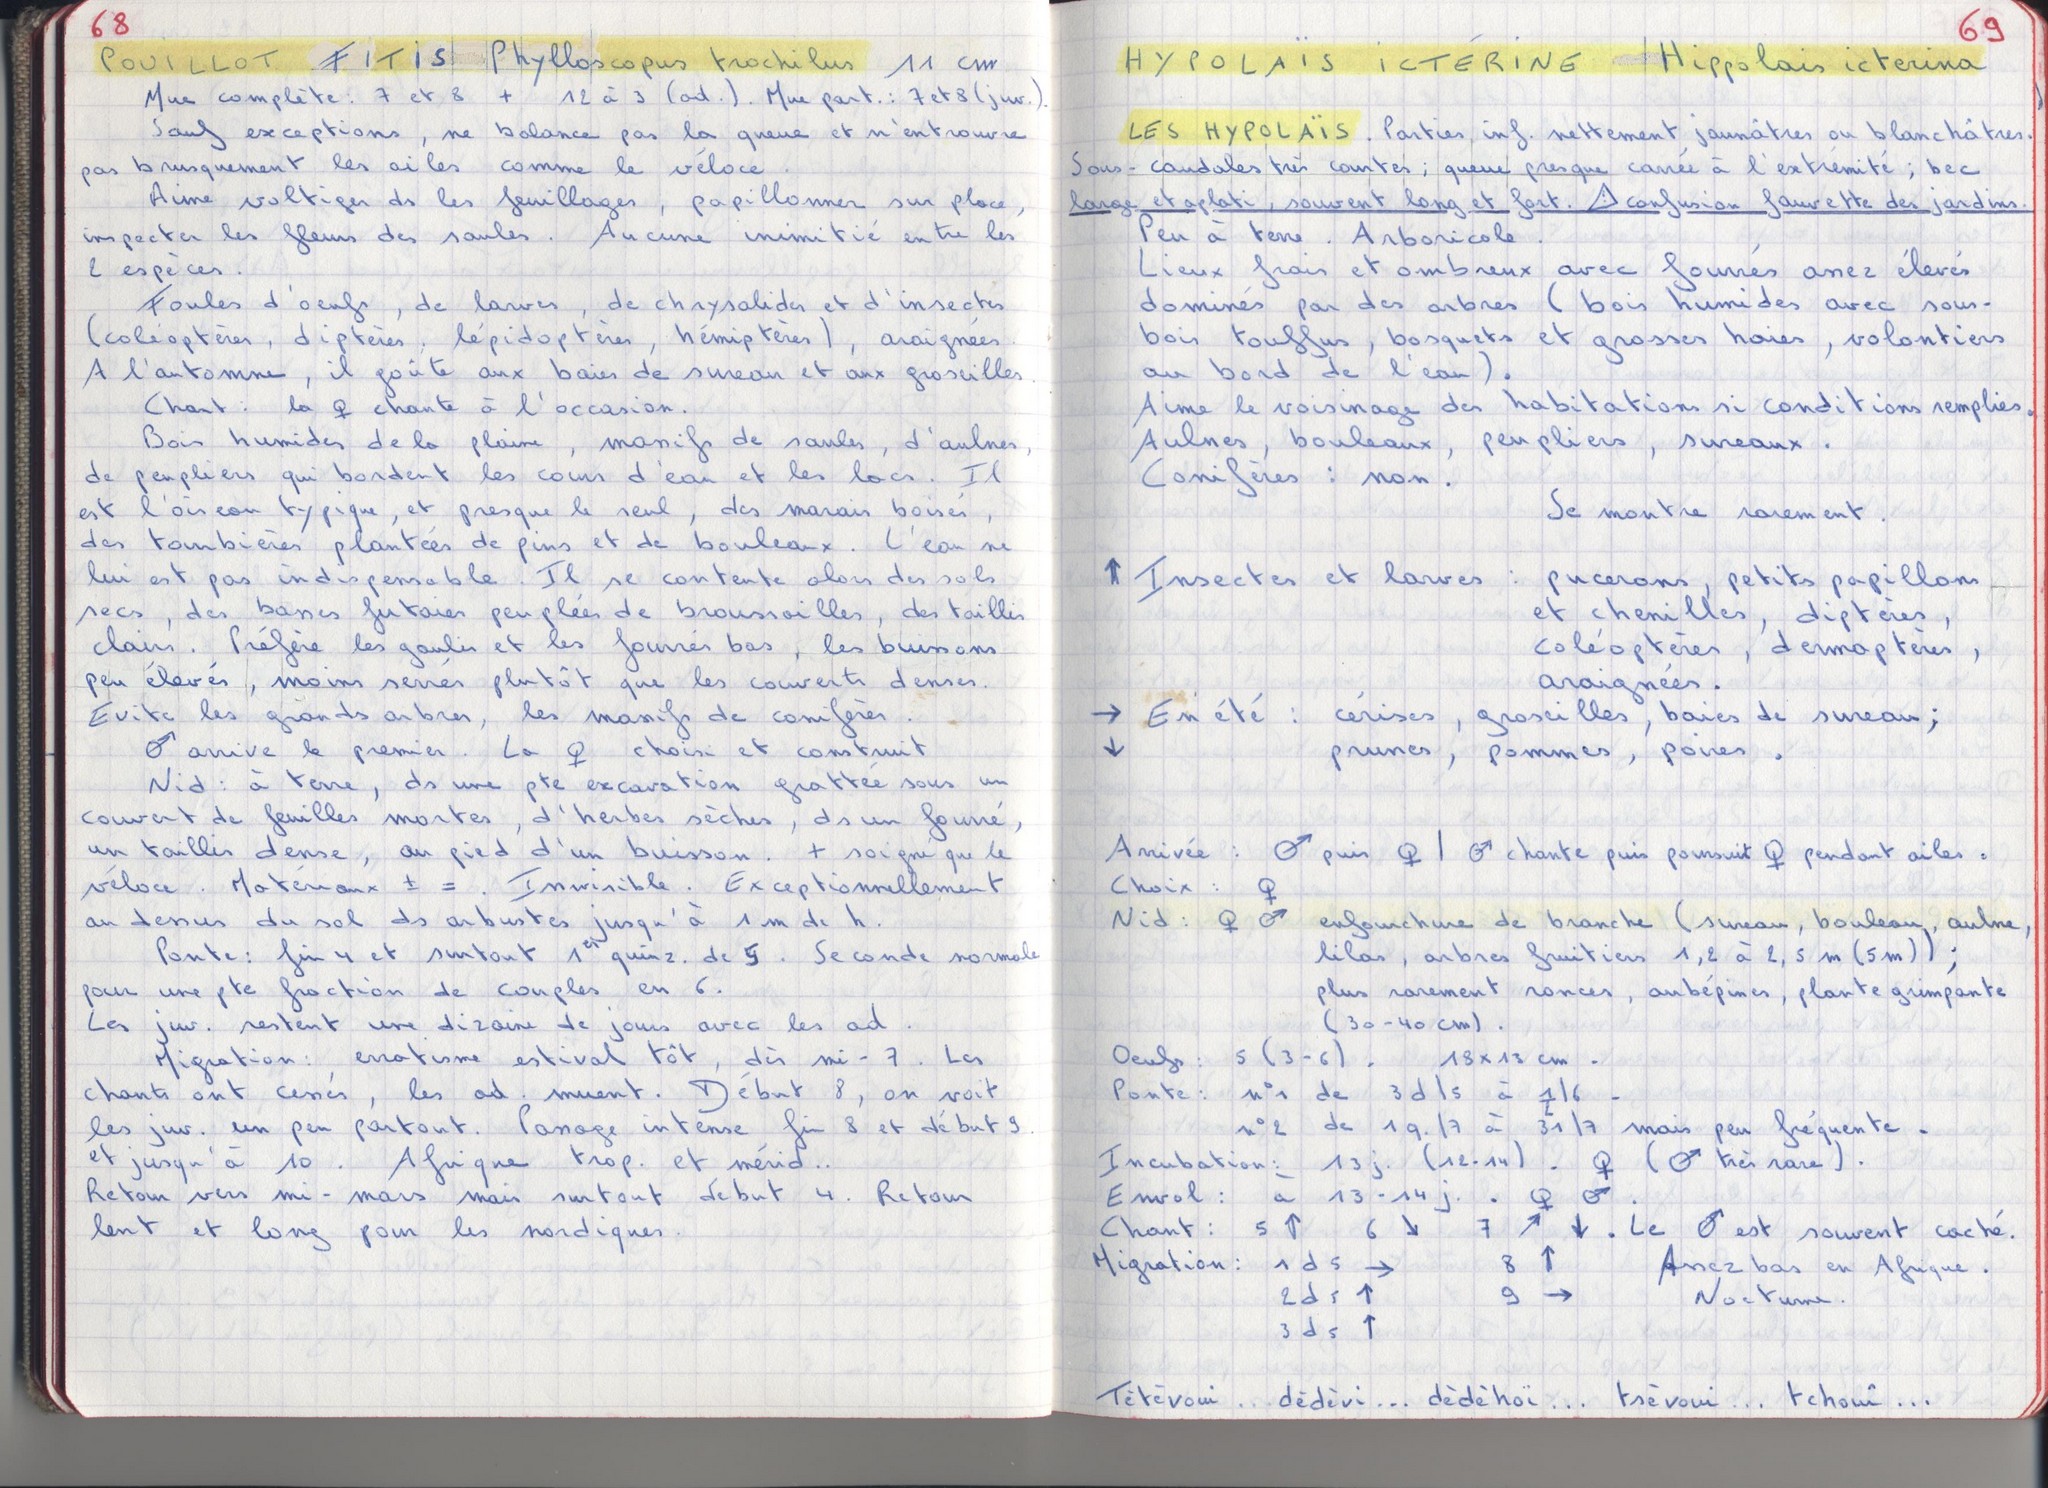 68
POUILLOT FITIS Phylloscopus trochilus 11 cm
Mue complète : 7 et 8 + 12 à 3 (ad.). Mue part. : 7 et 8 (juv.).
Sauf exceptions, ne balance pas la queue et n'entrouvre
pas brusquement les ailes comme le véloce.
Aime voltiger ds les feuillages, papillonner sur place,
inspecter les fleurs des saules. Aucune inimitié entre les
2 espèces.
Foules d'oeufs, de larves, de chrysalides et d'insectes
(coléoptères, diptères, lépidoptères, hémiptères), araignées.
A l'automne, il goûte aux baies de sureau et aux groseilles.
Chant : la ♀ chante à l'occasion.
Bois humides de la plaine, massifs de saules, d'aulnes,
de peupliers qui bordent les cours d'eau et les lacs. Il
est l'oiseau typique, et presque le seul, des marais boisés,
des tourbières plantées de pins et de bouleaux. L'eau ne
lui est pas indispensable. Il se contente alors des sols
secs, des basses futaies peuplées de broussailles, des taillis
clairs. Préfère les gaulis et les fourrés bas, les buissons
peu élevés, moins serrés plutôt que les couverts denses.
Evite les grands arbres, les massifs de conifères.
♂ arrive le premier. La ♀ choisi et construit
Nid : à terre, ds une pte excavation grattée sous un
couvert de feuilles mortes, d'herbes sèches, ds un fourré,
un taillis dense, au pied d'un buisson. + soigné que le
véloce. Matériaux ± =. Invisible. Exceptionnellement
au dessus du sol ds arbustes jusqu'à 1 m de h.
Ponte : fin 4 et surtout 1er quinz. de 5. Seconde normale
pour une pte fraction de couples en 6.
Les juv. restent une dizaine de jours avec les ad.
Migration : erratisme estival tôt, dès mi-7. Les
chants ont cessés, les ad. muent. Début 8, on voit
les juv. un peu partout. Passage intense fin 8 et début 9.
et jusqu'à 10. Afrique trop. et mérid..
Retour vers mi-mars mais surtout début 4. Retour
lent et long pour les nordiques.
69
HYPOLAÏS ICTÉRINE Hippolais icterina
LES HYPOLAÏS. Parties inf. nettement jaunâtres ou blanchâtres.
Sous-caudales très courtes ; queue presque carrée à l'extrémité ; bec
large et aplati, souvent long et fort. ⚠ confusion fauvette des jardins.
Peu à terre. Arboricole.
Lieux frais et ombreux avec fourrés assez élevés
dominés par des arbres (bois humides avec sous-
bois touffus, bosquets et grosses haies, volontiers
au bord de l'eau).
Aime le voisinage des habitations si conditions remplies.
Aulnes, bouleaux, peupliers, sureaux.
Conifères : non.
Se montre rarement.
↑ Insectes et larves : pucerons, petits papillons
et chenilles, diptères,
coléoptères, dermoptères,
araignées.
→ En été : cérises, groseilles, baies de sureau ;
↓ prunes, pommes, poires.
Arrivée : ♂ puis ♀ / ♂ chante puis poursuit ♀ pendant ailes.
Choix : ♀
Nid : ♀ ♂ enfourchure de branche (sureau, bouleau, aulne,
lilas, arbres fruitiers 1,2 à 2,5 m (5 m)) ;
plus rarement ronces, aubépines, plante grimpante
(30-40 cm).
Oeufs : 5 (3-6). 18x13 cm.
Ponte : n°1 de 3d/5 à 1/6.
n°2 de 1q./7 à 31/7 mais peu fréquente.
Incubation : 13 j. (12-14). ♀ (♂ très rare).
Envol : à 13-14 j. . ♀ ♂.
Chant : 5 ↑ 6 ↘ 7 ↗ ↓. Le ♂ est souvent caché.
Migration : 1d5 → 8 ↑ Assez bas en Afrique.
2d5 ↑ 9 → Nocturne.
3d5 ↑
Tètèvoui... dèdèvi... dèdèhoï... tsèvoui... tchouî...